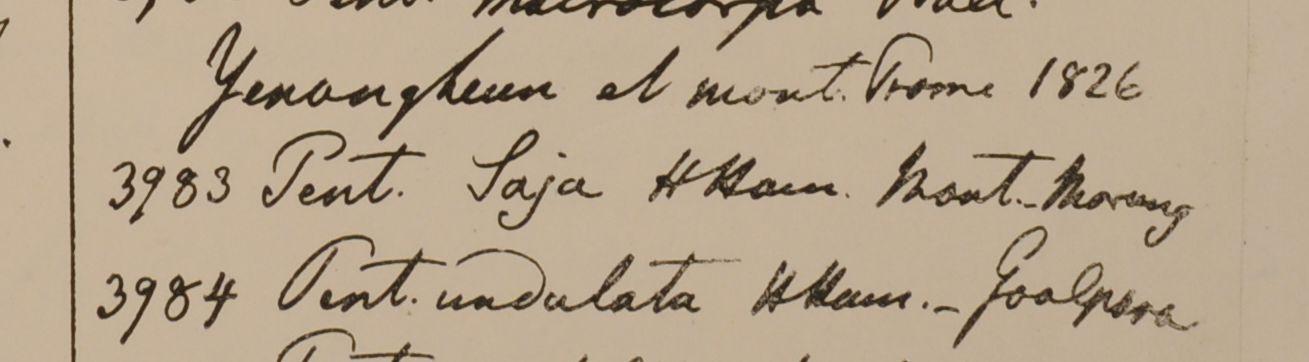 Pent. macrocarpa Wall.
Yenangheun et mont. Prome 1826
3983 Pent. Saja HHam. Mont. - Morung
3984 Pent. undulata HHam. - Goalpara